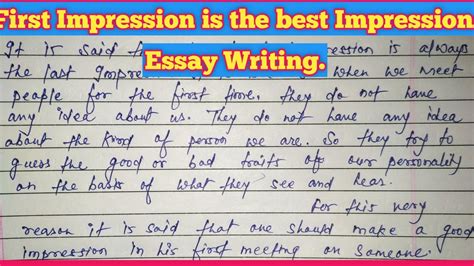 First Impression is the best Impression
Essay Writing.
It is said ression is always
the last Impre when we meet
people for the first time. they do not have
any idea about us. They do not have any idea
about the kind of person we are. So they try to
guess the good or bad traits of our personality
on the basis of what they see and hear.
for this very
reason it is said that one should make a good
impression in his first meeting on someone.